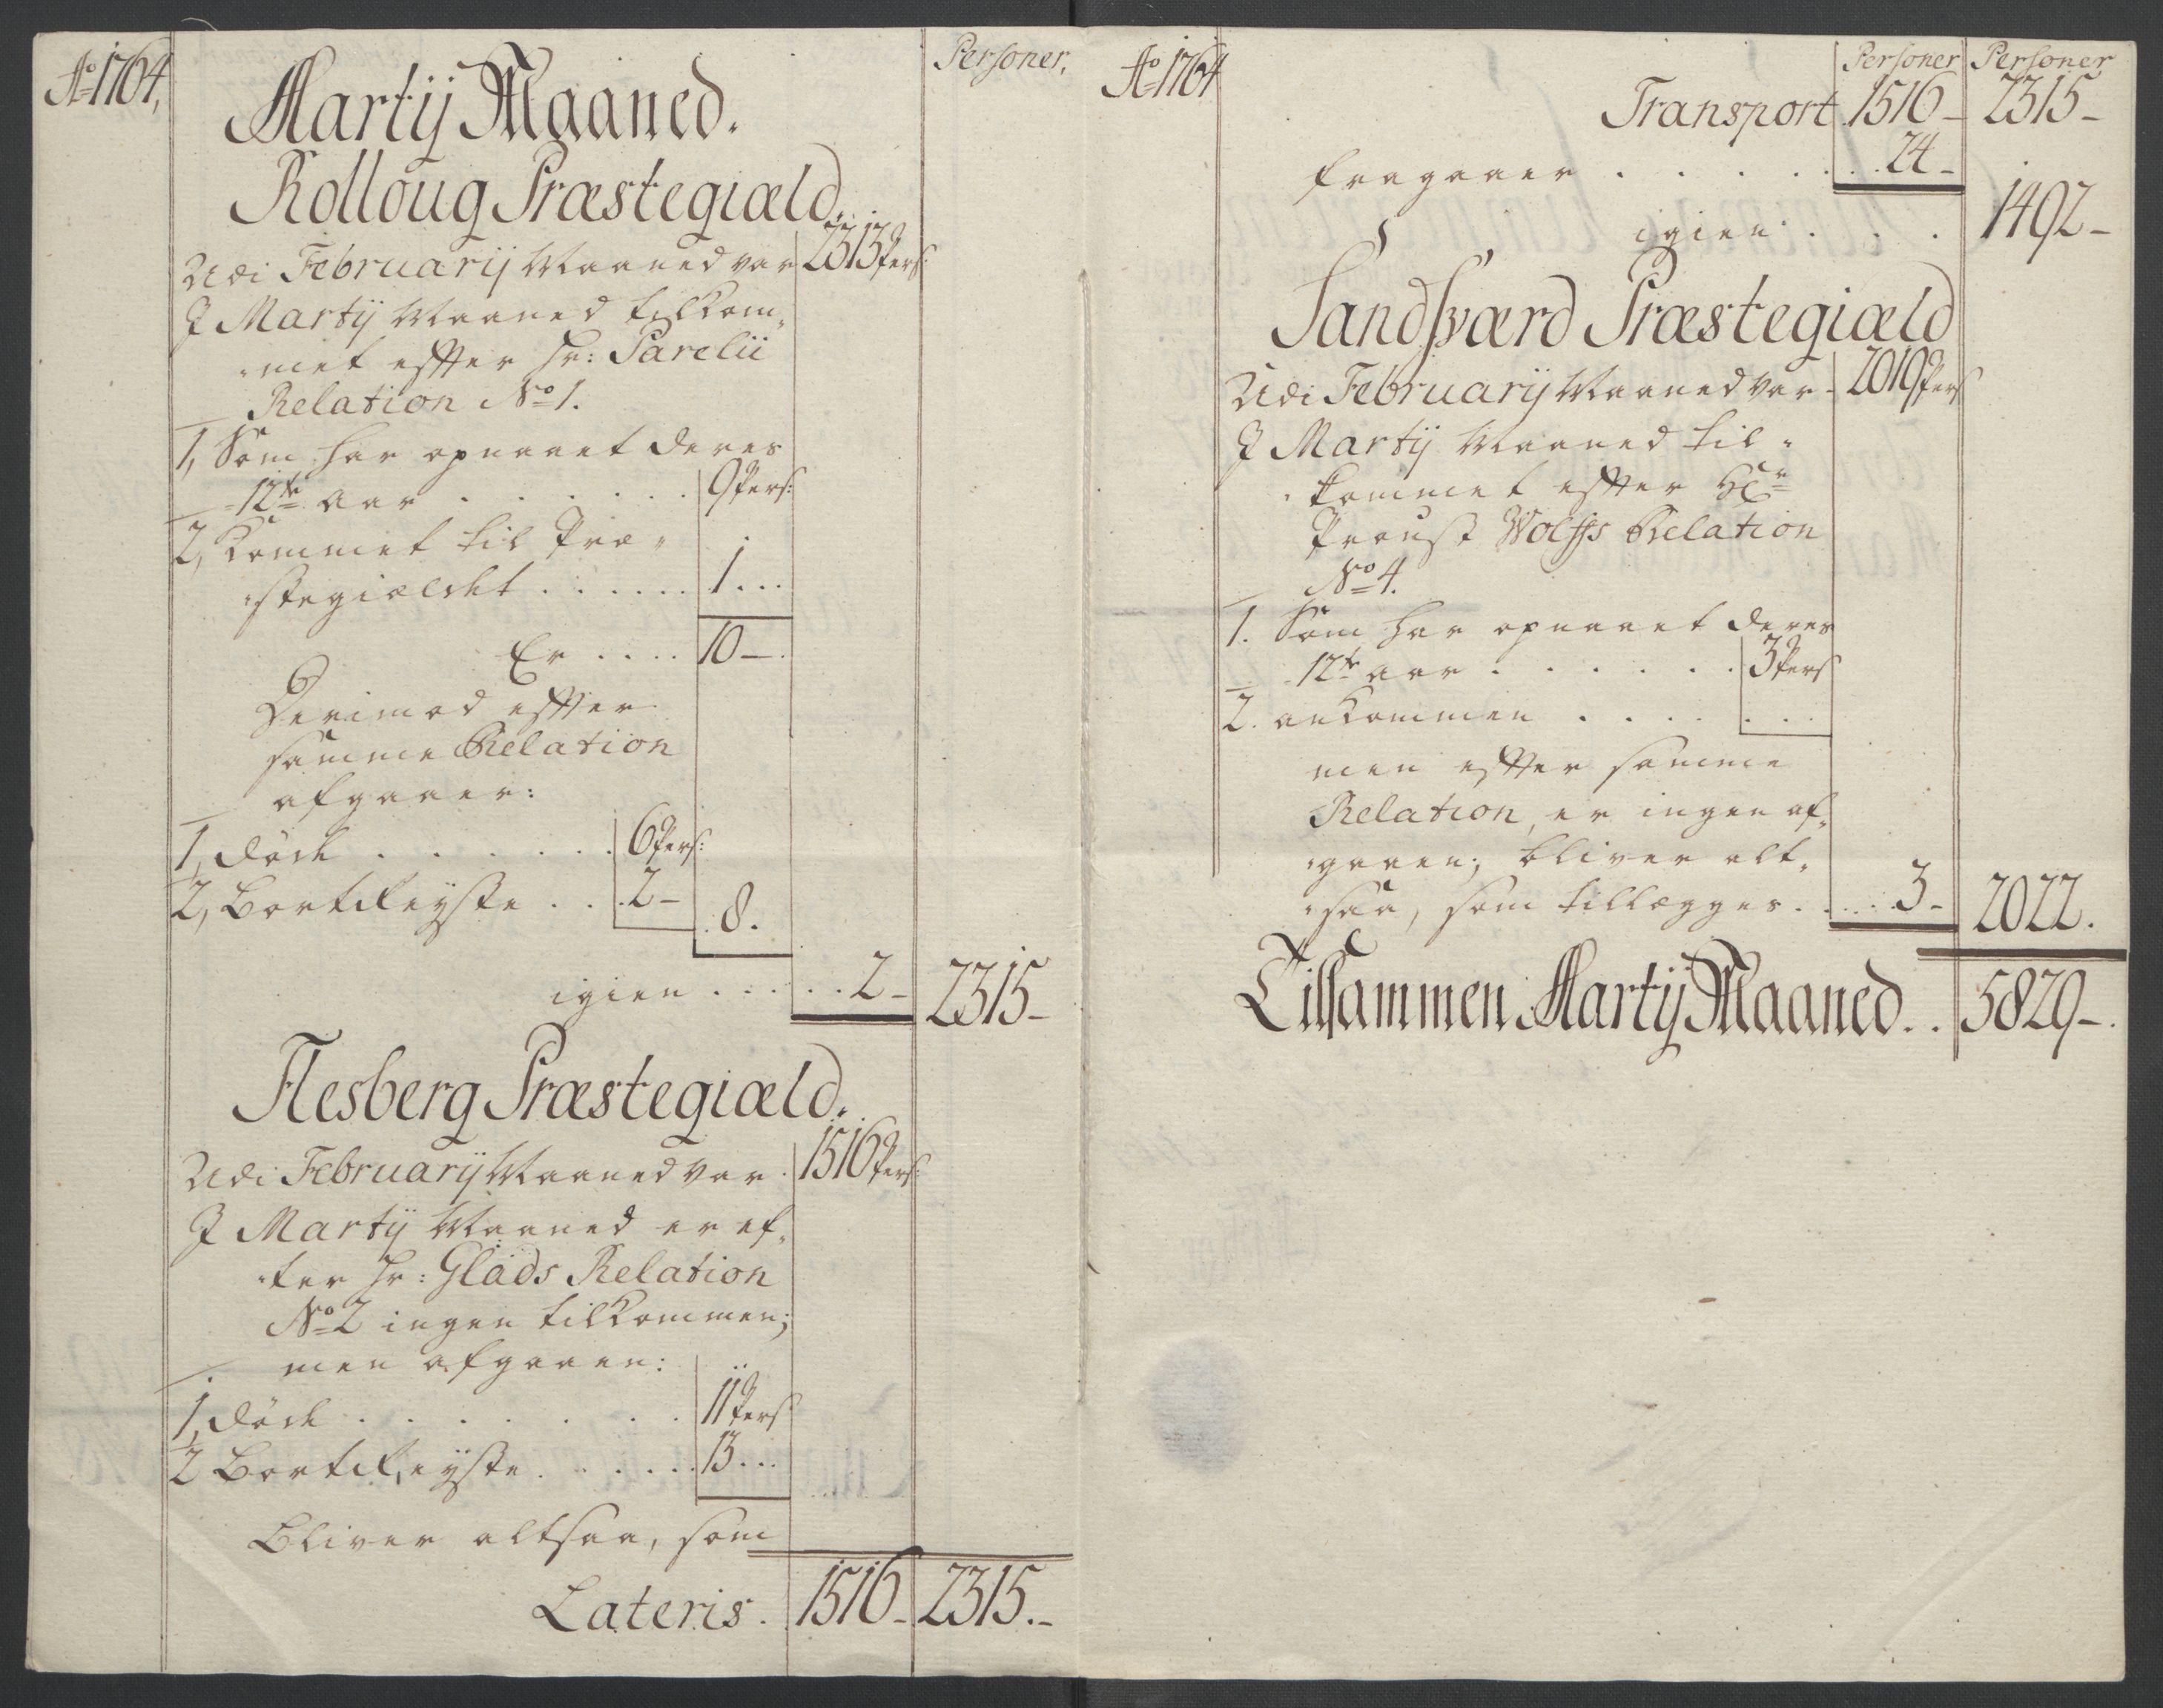 Ao 1764,
Personer,
Martij Maaned.
Rolloug Præstegiæld.
Udi Februarij Maaned var 2313 Pers:
J Martij Maaned tilkom„
„met effter Hr: Parelii
Relation No 1.
1, Som har opnaaet deres
12te aar . . . . . . 9 Pers:
2, Kommet til Præ„
„stegieldet . . . . . . 1 . . .
Er . . . . 10 –.
Derimod effter
samme Relation
afgaaer:
1, døde . . . . . . 6 Pers:
2, Bortreyste . . . 2 –
8.
igien . . . . . 2 – 2315 –
Flesberg Præstegiæld.
Udi Februarij Maaned var . 1516 Pers:
J Martij Maaned er ef„
„ter Hr: Glads Relation
No 2 ingen tilkommen;
men afgaaen:
1, døde . . . . . . . 11 Pers
2 Bortreyste . . . . . . 13 . . .
Bliver altsaa, som
Lateris . 1516 – 2315. –
Ao 1764
Personer Personer
Transport 1516 – 2315 –
fragaaer . . . . . . . 24 –
igien . . . 1492 –
Sandsværd Præstegiæld
Udi Februarij Maaned var – 2019 Pers
J Martij Maaned til„
„kommet effter Hr
Proust Wolffs Relation
No 4.
1. Som har opnaaet deres
12te aar . . . . . . 3 Pers
2. ankommen . . . . . . .
men effter samme
Relation, er ingen af„
„gaaen; bliver alt„
„saa, som tillægges . . . . . 3 – 2022.
Tilsammen Martij Maaned . . 5829 –.